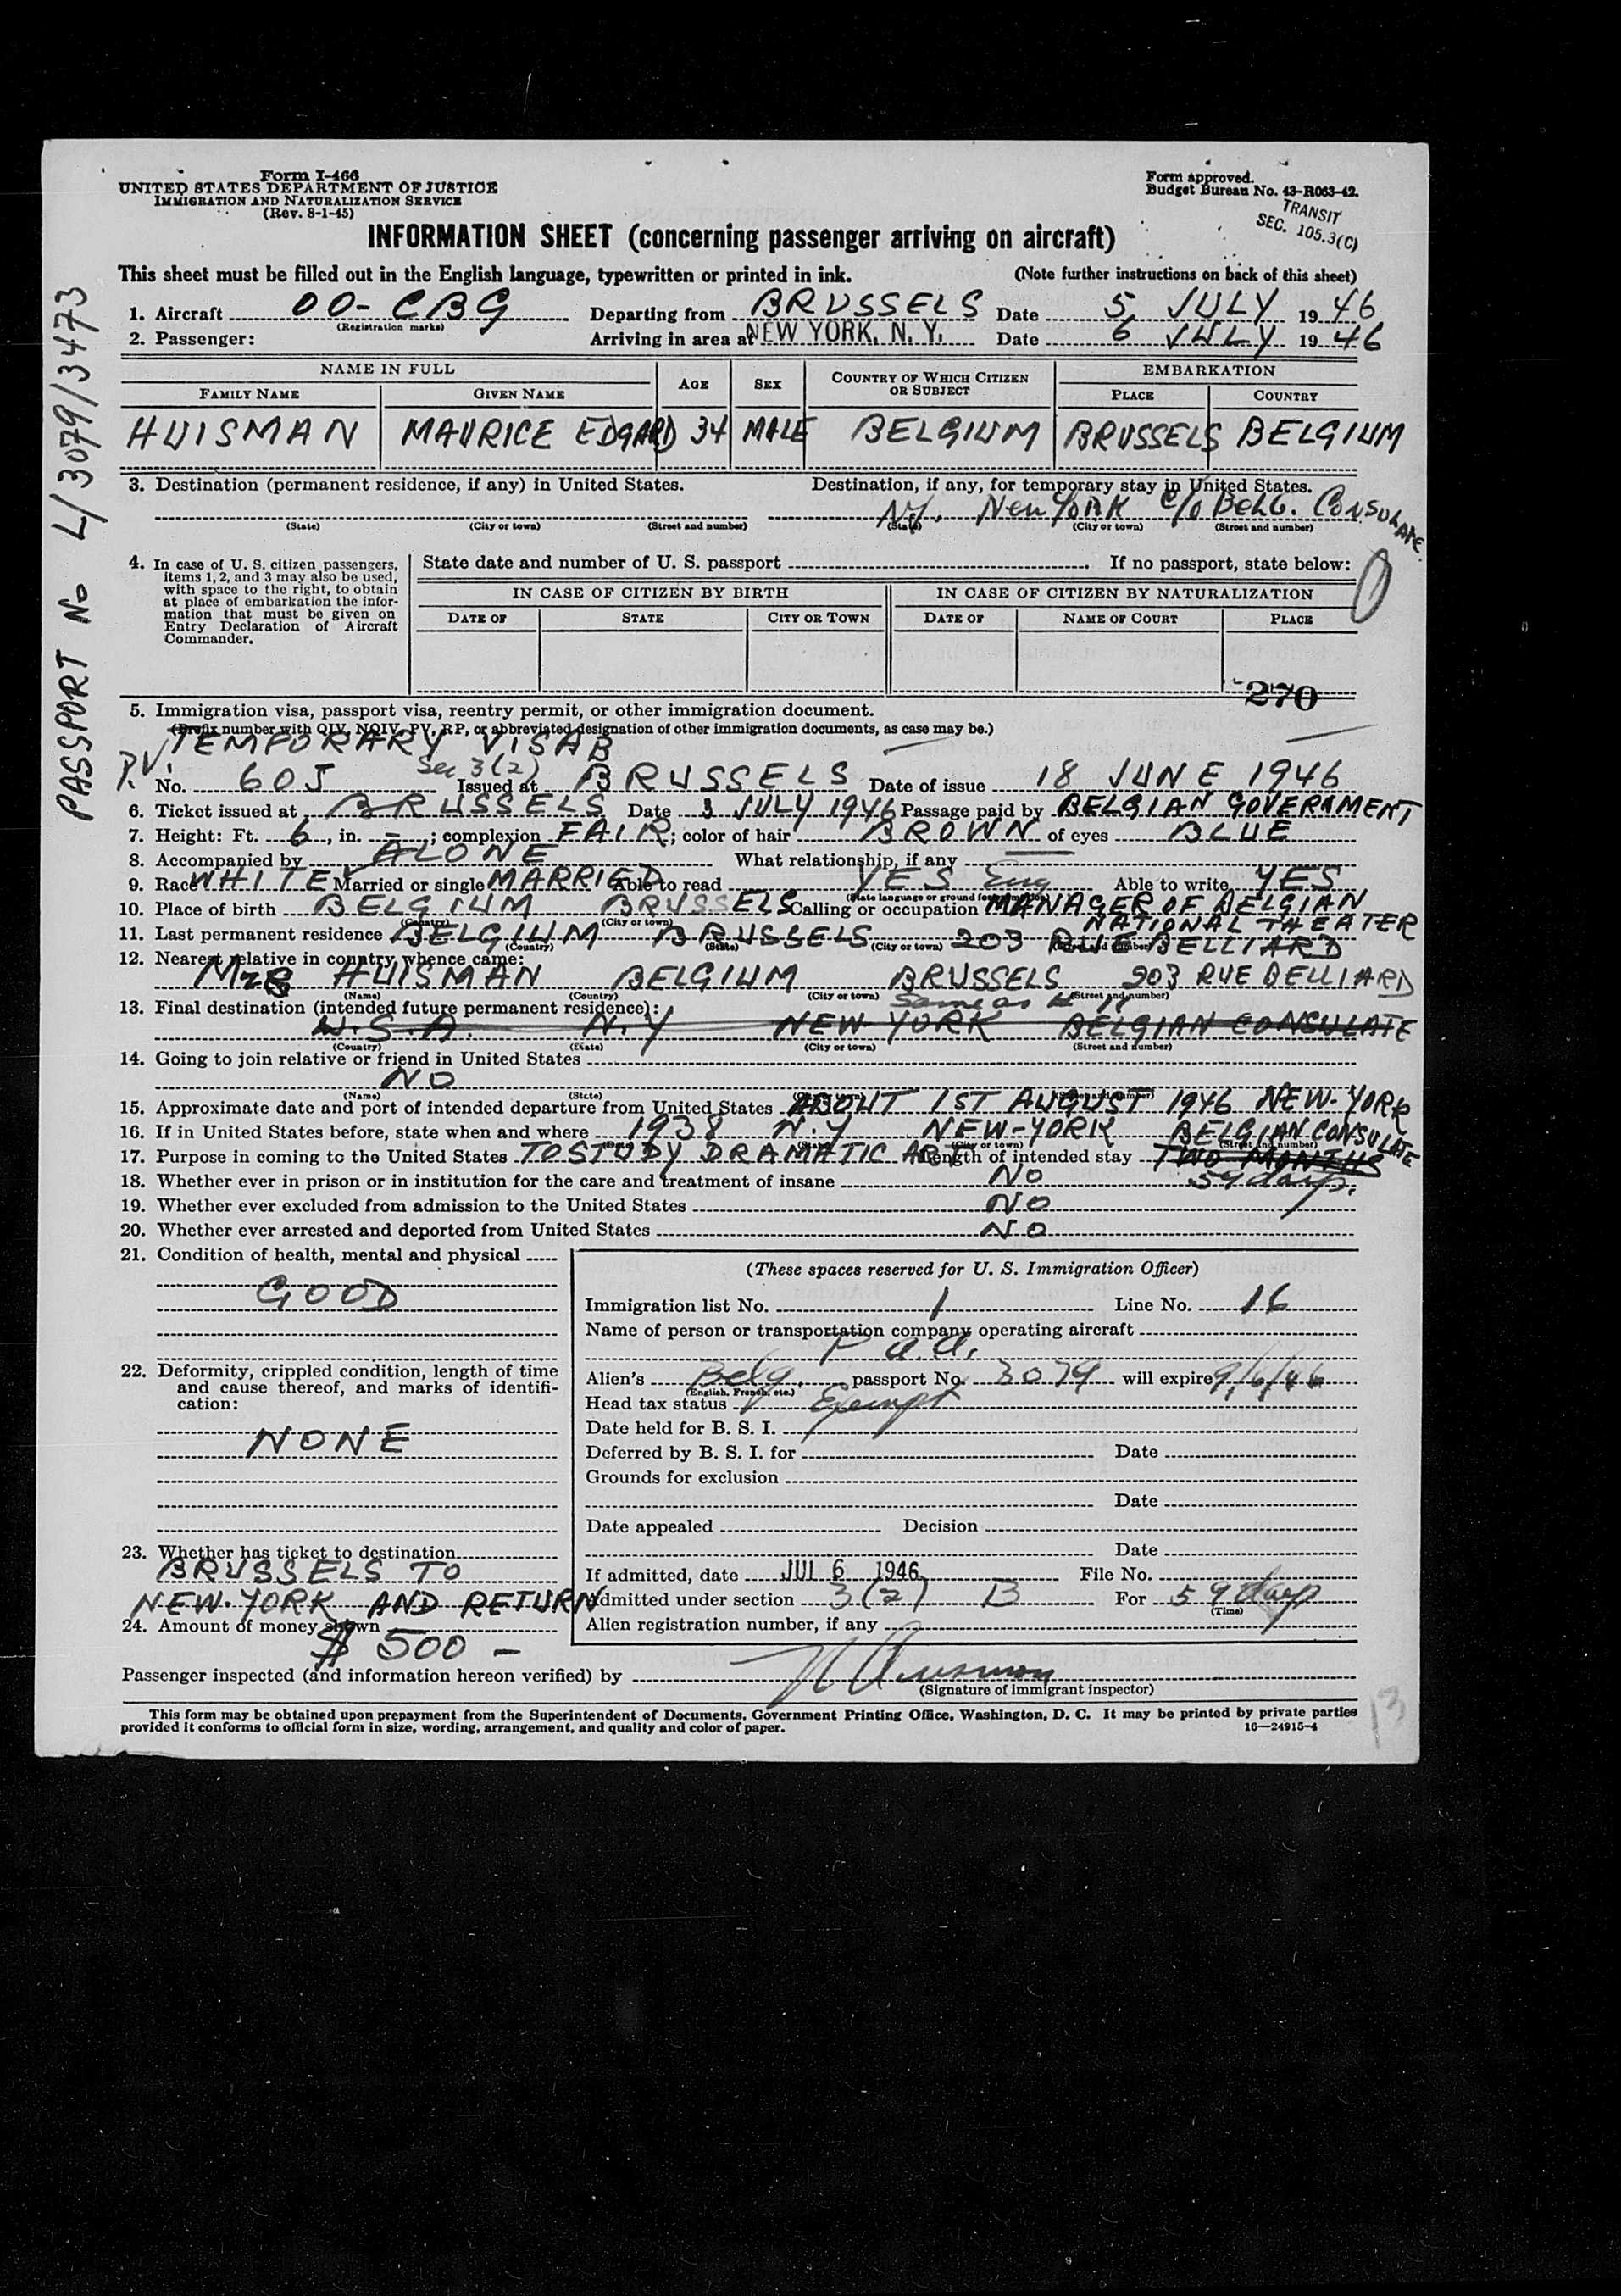 Form I-466
UNITED STATES DEPARTMENT OF JUSTICE
IMMIGRATION AND NATURALIZATION SERVICE
(Rev. 8-1-45)
Form approved.
Budget Bureau No. 43-R063-42.
TRANSIT
SEC. 105.3(C)
INFORMATION SHEET (concerning passenger arriving on aircraft)
This sheet must be filled out in the English language, typewritten or printed in ink. (Note further instructions on back of this sheet)
PASSPORT No L/3079/3473
1. Aircraft OO-CBG Departing from BRUSSELS Date 5 JULY 1946
(Registration marks)
2. Passenger: Arriving in area at NEW YORK, N. Y. Date 6 JULY 1946
NAME IN FULL AGE SEX COUNTRY OF WHICH CITIZEN OR SUBJECT EMBARKATION
FAMILY NAME GIVEN NAME PLACE COUNTRY
HUISMAN MAURICE EDGARD 34 MALE BELGIUM BRUSSELS BELGIUM
3. Destination (permanent residence, if any) in United States. Destination, if any, for temporary stay in United States.
NY. New York c/o Belg. Consulate
(State) (City or town) (Street and number) (State) (City or town) (Street and number)
4. In case of U. S. citizen passengers, items 1, 2, and 3 may also be used, with space to the right, to obtain at place of embarkation the information that must be given on Entry Declaration of Aircraft Commander.
State date and number of U. S. passport If no passport, state below:
IN CASE OF CITIZEN BY BIRTH IN CASE OF CITIZEN BY NATURALIZATION
DATE OF STATE CITY OR TOWN DATE OF NAME OF COURT PLACE
270
5. Immigration visa, passport visa, reentry permit, or other immigration document.
(Prefix number with QIV, NQIV, PV, RP, or abbreviated designation of other immigration documents, as case may be.)
TEMPORARY VISA B
P.V. Sec 3(2)
No. 605 Issued at BRUSSELS Date of issue 18 JUNE 1946
6. Ticket issued at BRUSSELS Date 3 JULY 1946 Passage paid by BELGIAN GOVERNMENT
7. Height: Ft. 6, in. –; complexion FAIR; color of hair BROWN of eyes BLUE
8. Accompanied by ALONE What relationship, if any
9. Race WHITE Married or single MARRIED Able to read YES Eng Able to write YES
(State language or ground for exemption)
10. Place of birth BELGIUM BRUSSELS Calling or occupation MANAGER OF BELGIAN NATIONAL THEATER
(Country) (City or town)
11. Last permanent residence BELGIUM BRUSSELS 203 RUE BELLIARD
(Country) (State) (City or town) (Street and number)
12. Nearest relative in country whence came:
Mrs HUISMAN BELGIUM BRUSSELS 203 RUE BELLIARD
(Name) (Country) (City or town) (Street and number)
13. Final destination (intended future permanent residence): Same as # 11
U.S.A. N.Y NEW YORK BELGIAN CONSULATE
(Country) (State) (City or town) (Street and number)
14. Going to join relative or friend in United States
NO
(Name) (State) (City or town) (Street and number)
15. Approximate date and port of intended departure from United States ABOUT 1ST AUGUST 1946 NEW-YORK
16. If in United States before, state when and where 1938 N.Y NEW-YORK BELGIAN CONSULATE
(Date) (State) (City or town) (Street and number)
17. Purpose in coming to the United States TO STUDY DRAMATIC ART Length of intended stay TWO MONTHS
59 days.
18. Whether ever in prison or in institution for the care and treatment of insane NO
19. Whether ever excluded from admission to the United States NO
20. Whether ever arrested and deported from United States NO
21. Condition of health, mental and physical
GOOD
22. Deformity, crippled condition, length of time and cause thereof, and marks of identification:
NONE
23. Whether has ticket to destination
BRUSSELS TO
NEW-YORK AND RETURN
24. Amount of money shown
$ 500 –
(These spaces reserved for U. S. Immigration Officer)
Immigration list No. 1 Line No. 16
Name of person or transportation company operating aircraft
P a.a.
Alien's Belg. passport No. 3079 will expire 9/6/46
(English, French, etc.)
Head tax status Exempt
Date held for B. S. I.
Deferred by B. S. I. for Date
Grounds for exclusion
Date
Date appealed Decision
Date
If admitted, date JUL 6 1946 File No.
Admitted under section 3(2) B For 59 days
(Time)
Alien registration number, if any
Passenger inspected (and information hereon verified) by
(Signature of immigrant inspector)
This form may be obtained upon prepayment from the Superintendent of Documents, Government Printing Office, Washington, D. C. It may be printed by private parties
provided it conforms to official form in size, wording, arrangement, and quality and color of paper. 16—24915-4
13